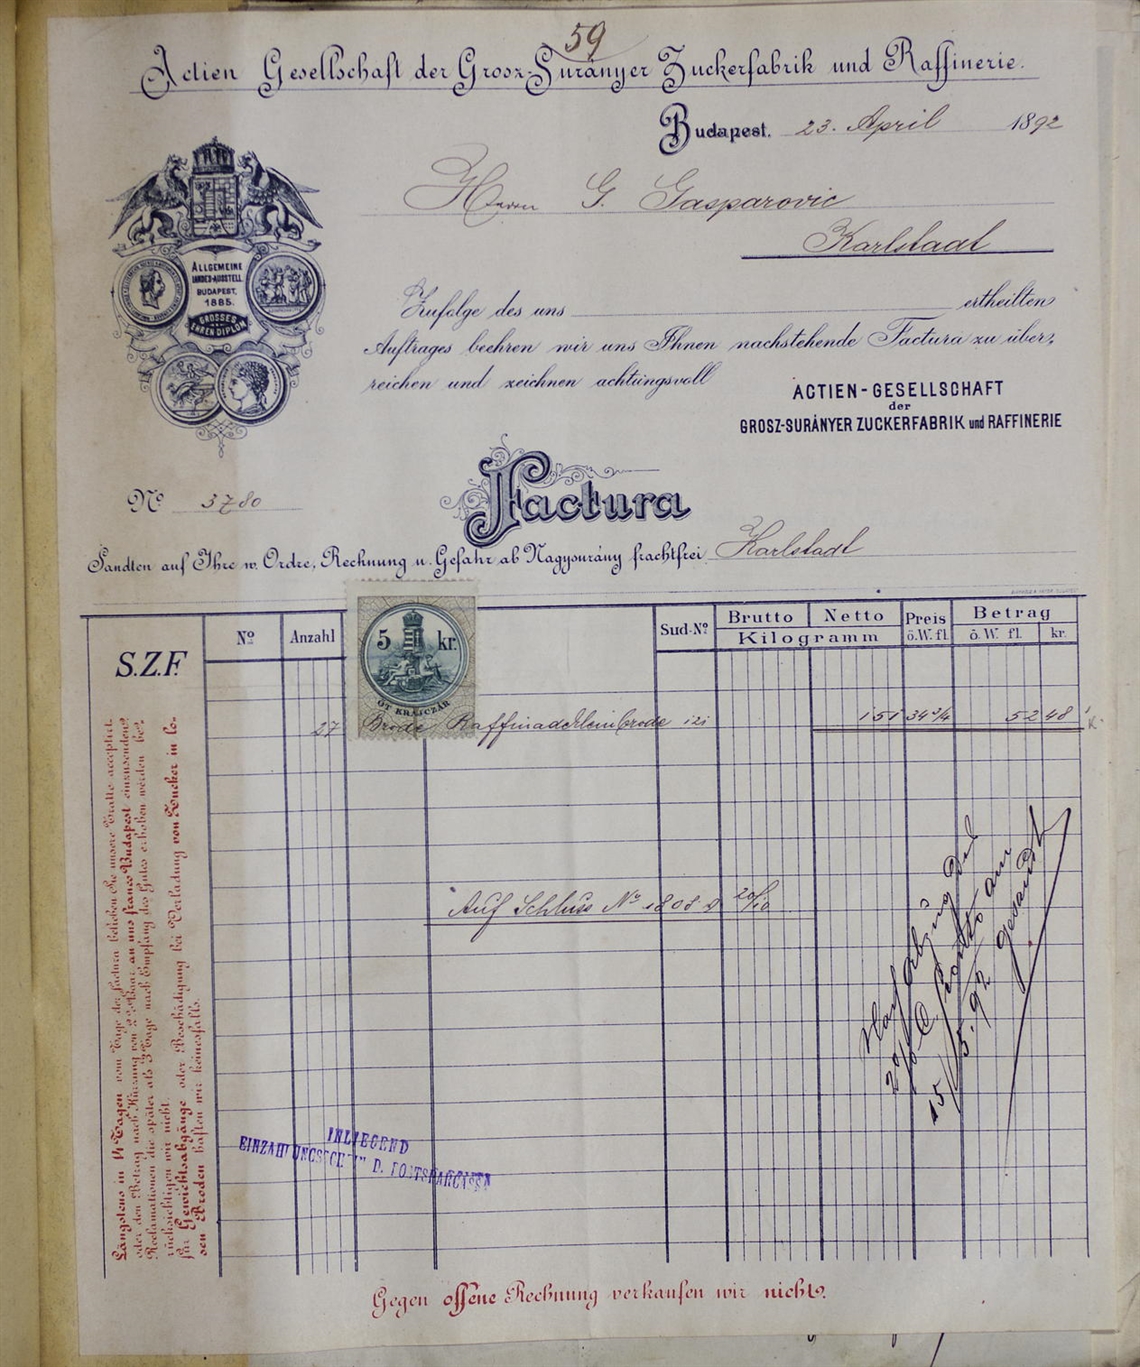 59
Actien Gesellschaft der Grosz-Surányer Zuckerfabrik und Raffinerie.
Budapest, 23. April 1892
Herrn G. Gasparovic
Karlstadt
ALLGEMEINE
LANDES-AUSSTELL.
BUDAPEST,
1885.
GROSSES
EHREN DIPLOM
Zufolge des uns ertheilten
Auftrages beehren wir uns Ihnen nachstehende Factura zu über-
reichen und zeichnen achtungsvoll
ACTIEN-GESELLSCHAFT
der
GROSZ-SURÁNYER ZUCKERFABRIK und RAFFINERIE
Nº 3780
Factura
Sandten auf Ihre w. Ordre, Rechnung u. Gefahr ab Nagysurány frachtfrei Karlstadt
Nº Anzahl Sud-Nº Brutto Netto Preis Betrag
Kilogramm ö.W.fl. ö. W. fl. kr.
S.Z.F.
5 kr.
ÖT KRAJCZÁR
27 Brode Raffinade Kleinbrode 121 151 34 3/4 52 48
Auf Schluss Nº 1808 20/10
Nach Abzug
2% Conto am
15/5. 92 gesandt
Längstens in 14 Tagen vom Tage der Factura belieben Sie unsere Tratte acceptirt
oder den Betrag nach Kürzung von 2% Baar an uns franco Budapest einzusenden.
Reclamationen die später als 3 Tage nach Empfang des Gutes erhoben werden be-
rücksichtigen wir nicht.
für Gewichtsabgänge oder Beschädigung bei Verladung von Zucker in lo-
sen Broden haften wir keinesfalls.
INLIEGEND
EINZAHLUNGSSCHEIN D. POSTSPARCASSA
Gegen offene Rechnung verkaufen wir nicht.